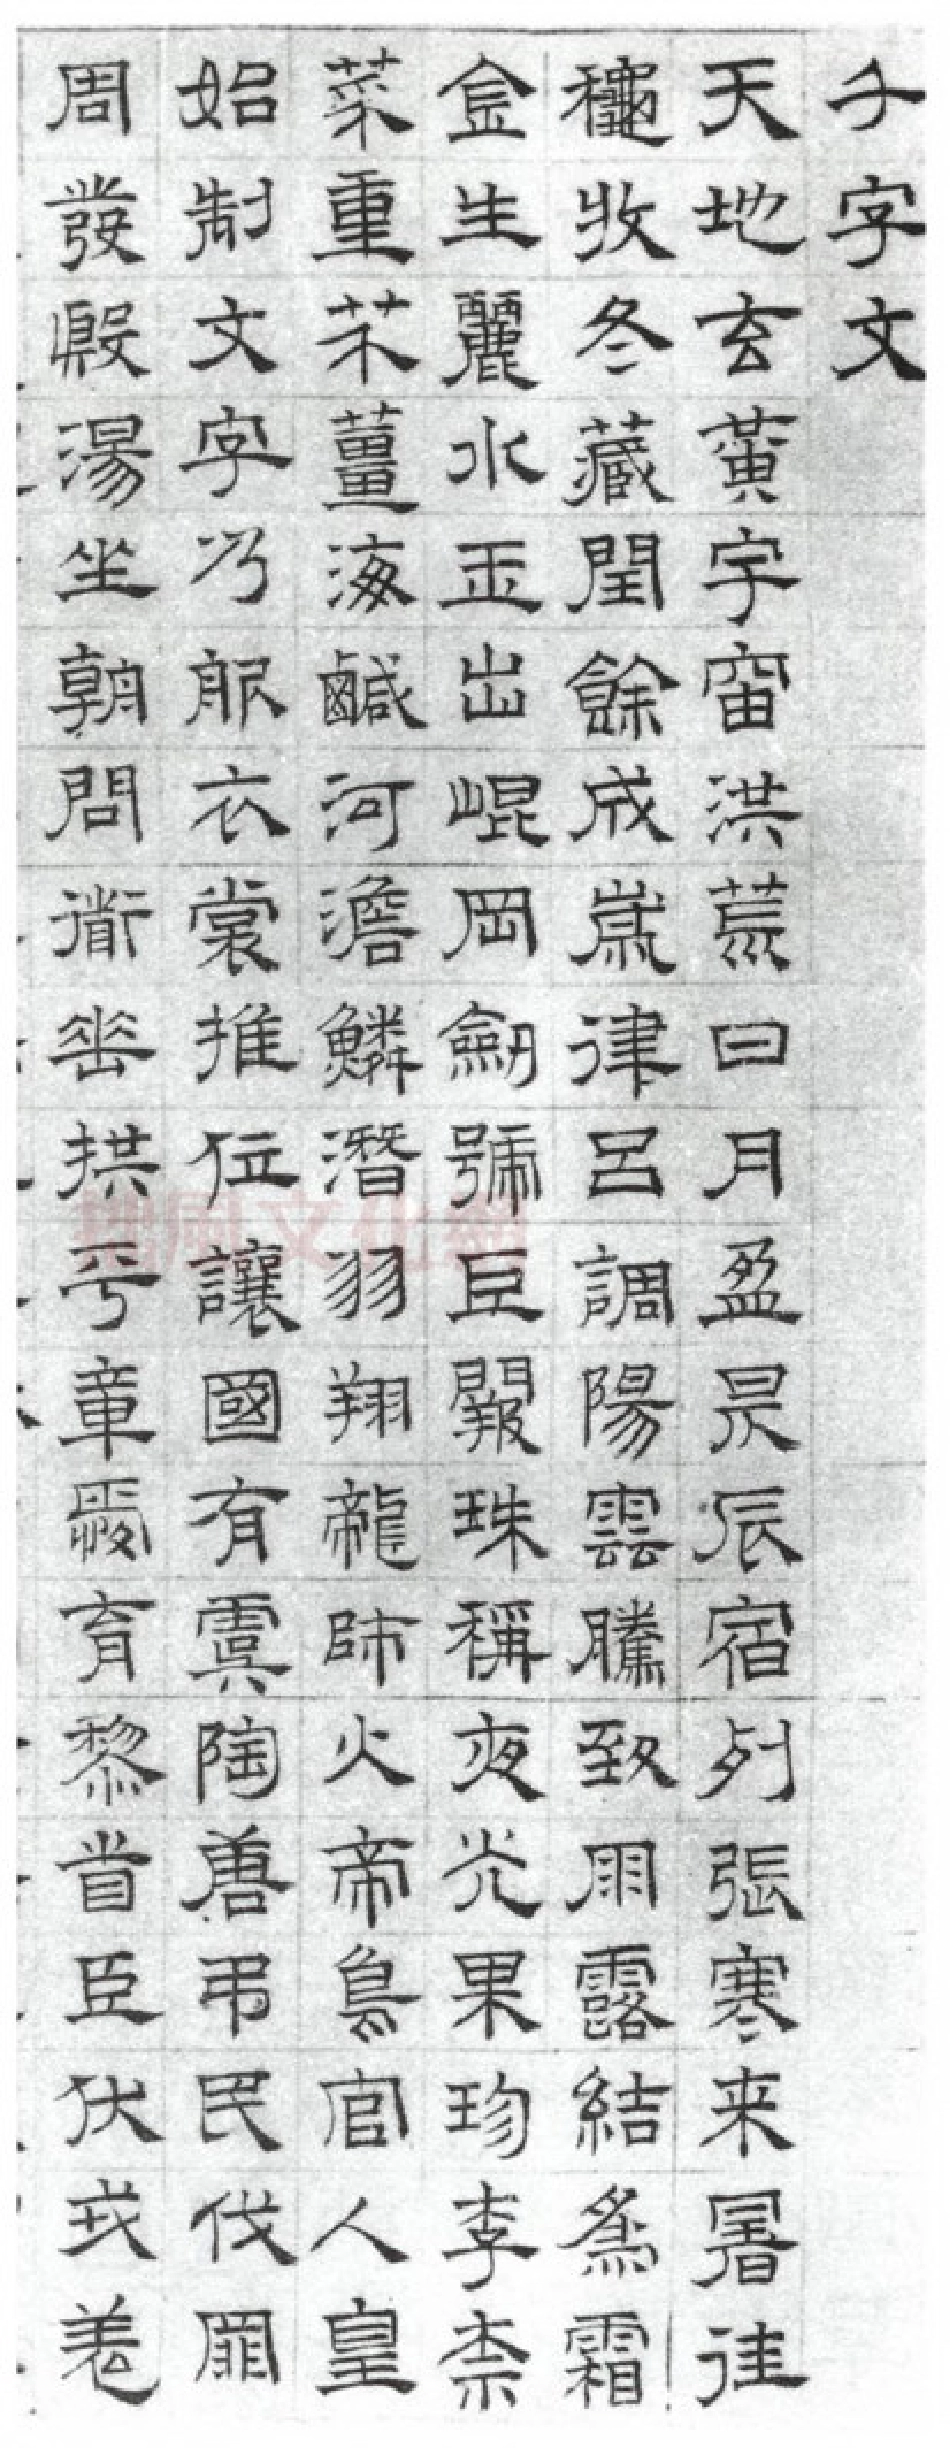 千字文
天地玄黃宇宙洪荒日月盈昃辰宿列張寒来暑往
穐收冬藏閏餘成歲律呂調陽雲騰致雨露結為霜
金生麗水玉出崐岡劒號巨闕珠稱夜光果珎李柰
菜重芥薑海鹹河澹鱗潛羽翔龍師火帝鳥官人皇
始制文字乃服衣裳推位讓國有虞陶唐弔民伐罪
周發殷湯坐朝問道垂拱平章愛育黎首臣伏戎羌